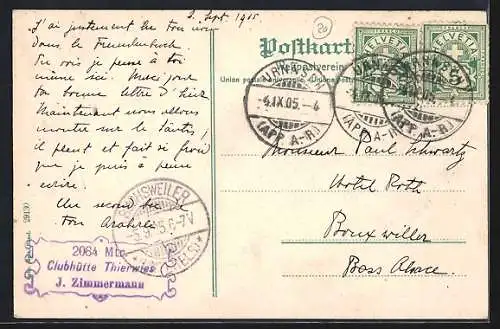 2. Sept. 1905
20
J'ai justement lu ton mot
dans le Fremdenbuch.
Du vois je pense à toi
même ici. Merci pour
ta bonne lettre d'hier
Maintenant nous allons
monter sur le Säntis,
il pleut et fait si froid
que je puis à peine
écrire.
Un
ton
Postkarte
Weltpostverein
Union postale universelle
HELVETIA
5
HELVETIA
5
URNÄSCH
-4.IX.05.-4
(APP. A-R.)
URNÄSCH
(APP. A-R.)
URNÄSCH
(APP. A-R.)
Monsieur Paul Schwartz
Hotel Roth
Bouxwiller
Bass Alsace.
BUCHSWEILER
5.9.05.6-7V
(ELS.)
29130
2064 Mtr.
Clubhütte Thierwies
J. Zimmermann